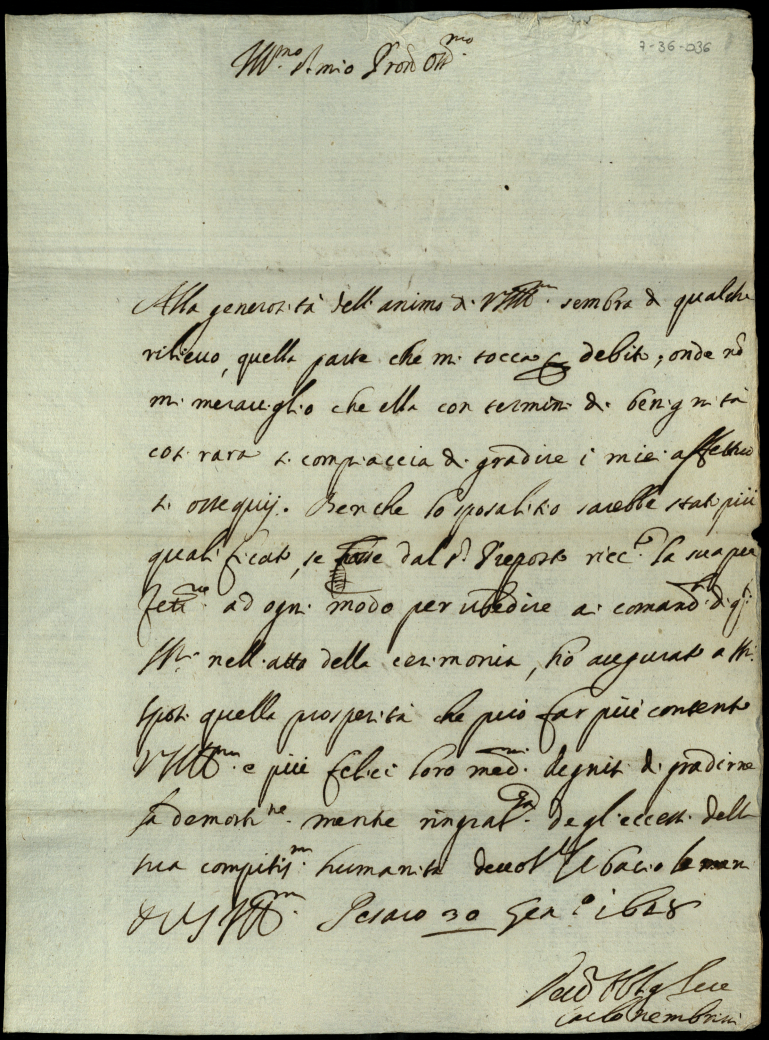 7-36-036
Ill.mo S.r mio Pron Oss.mo
Alla generosità dell'animo di V.S. Ill.ma sembra di qualche
rilieuo, quella parte che mi tocca per debito; onde nõ
mi merauiglio che ella con termini di benignità
così rara si compiaccia di gradire i miei affettuo
si ossequij. Benche lo sposalitio sarebbe stato più
qualificato, se fosse dal S.r Preposto la sua per
fett.ne ad ogni modo per ubedire ai comand.ti di q.
Ill.mi nell'atto della cerimonia, hò augurato a
sposi quella prosperità che può far più contento
V.S. Ill.ma e più felici loro med.mi degnisi di gradirne
la demost.ne mentre degl'eccessi della
sua compitis.ma humanità deuot.te le bacio le mani
di V.S. Ill.ma Pesaro 30 Gen.o 1628
Carlo Nembrini